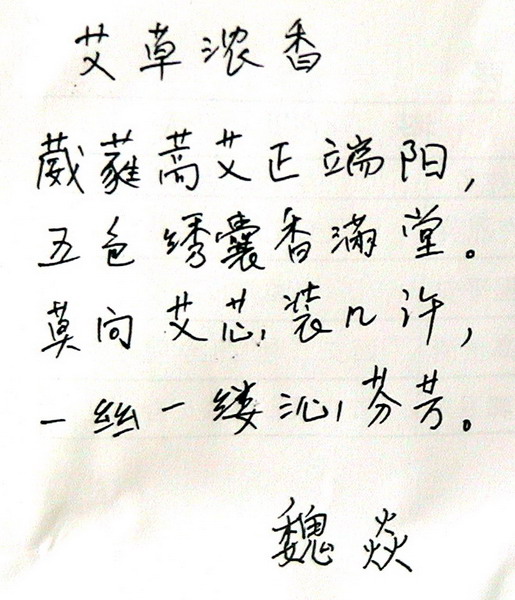 艾草浓香
葳蕤蒿艾正端阳，
五色绣囊香满堂。
莫问艾芯装几许，
一丝一缕沁芬芳。
魏焱